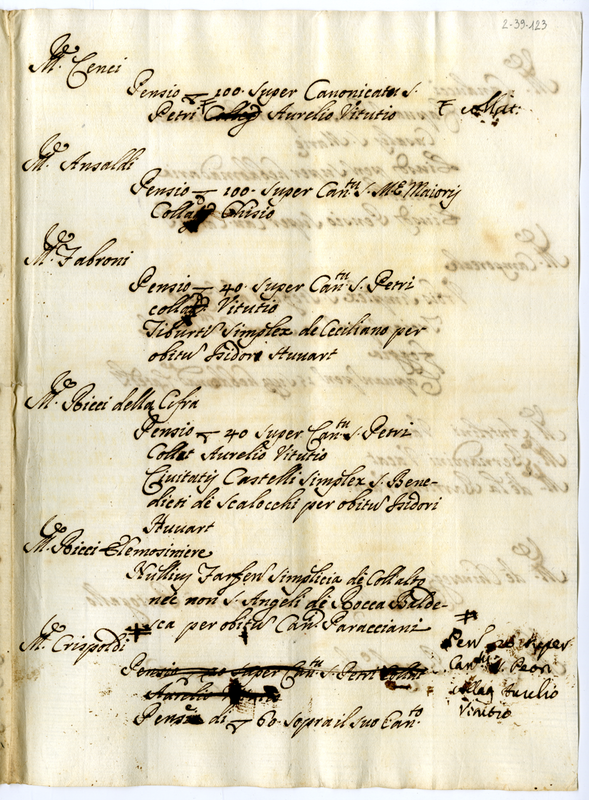 2-39-123
M.r Cenci
Pensio 100. super Canonicatu S.
Petri Aurelio Vitutio
M.r Ansaldi
Pensio 100. super Can.tu S. M.æ Maioris
Ghisio
M.r Fabroni
Pensio 40. super Can.tu S. Petri
Vitutio
Tiburtin Simplex de Ceciliano per
obitu Isidori Stuuart
M.r Ricci della Cifra
Pensio 40 super Can.tu S. Petri
Collat Aurelio Vitutio
Civitatis Castelli simplex S. Bene-
dicti de Scalocchi per obitu Isidori
Stuuart
M.r Ricci Elemosiniere
Nullius Farfen simplicia de Collalto
nec non S. Angeli de Rocca Balde-
sca per obitu Can. Paracciani
M.r Crispoldi
Pensio super Can.tu S. Petri
Aurelio
Pens di 60. sopra il suo Can.to
Pens
Can.tu S. Petri
Aurelio
Vitutio